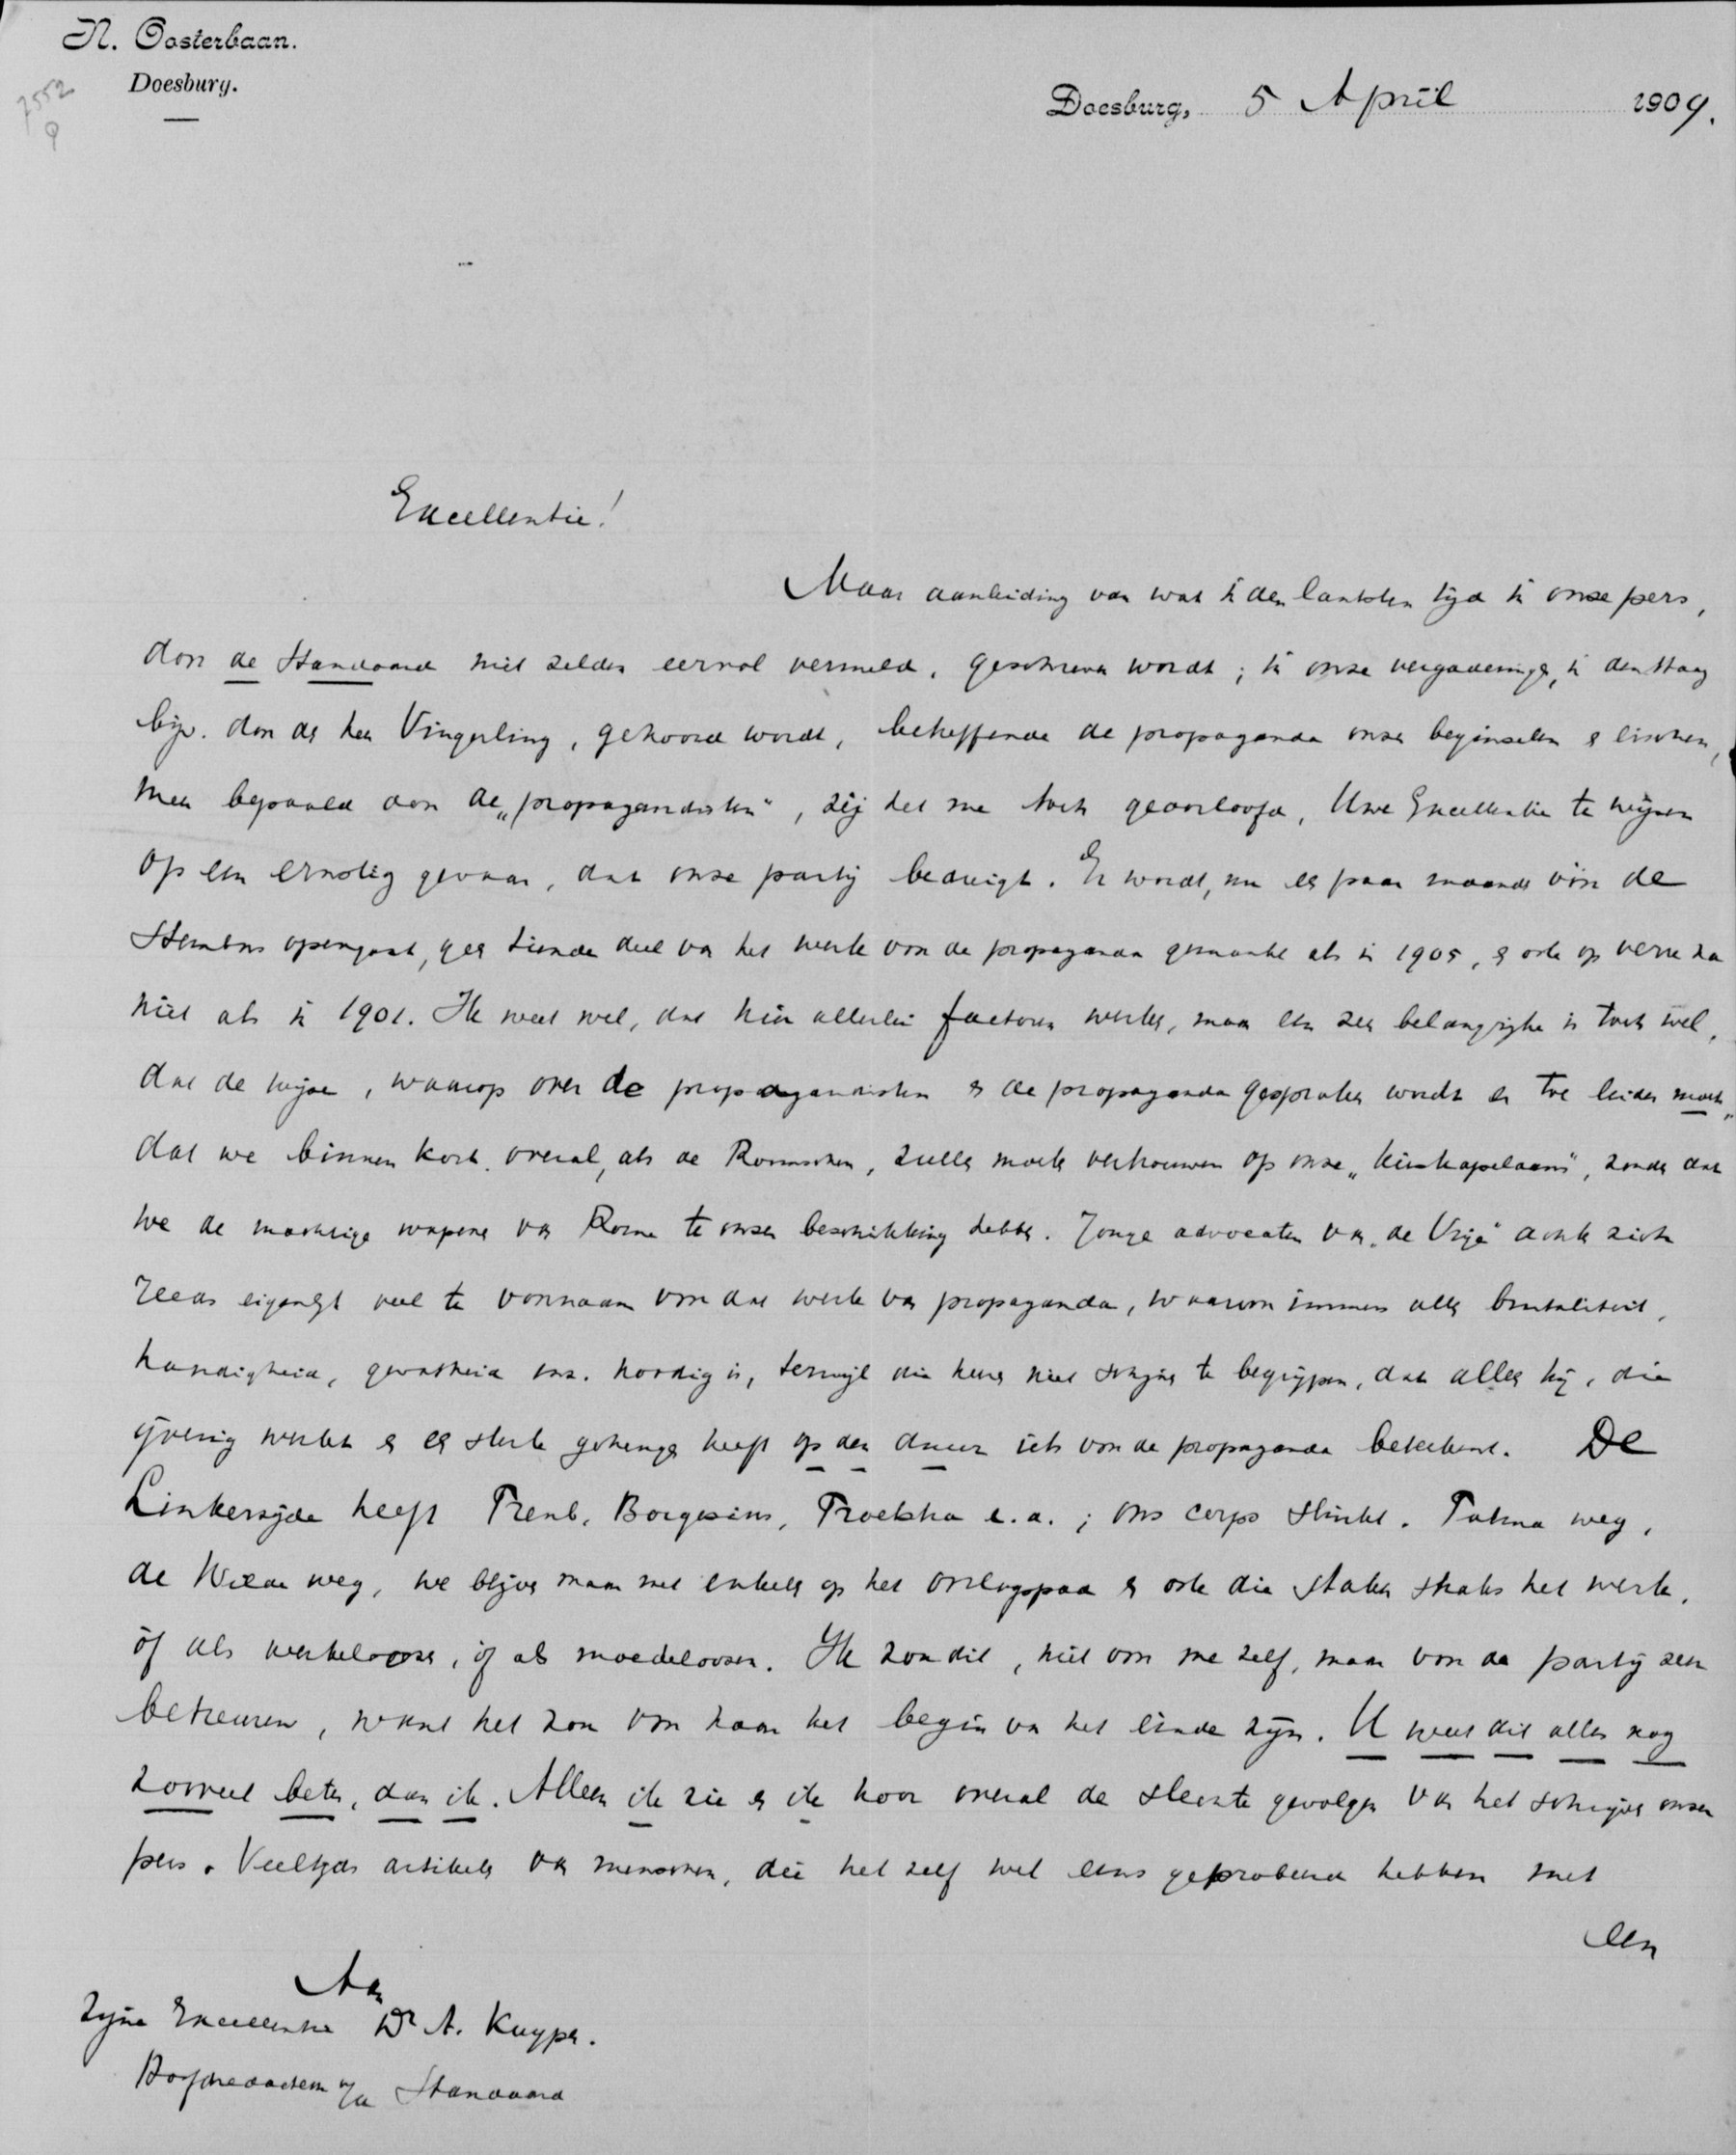 N. Oosterbaan.
Doesburg.
7552
Doesburg, 5 April 1909.
Excellentie!
Naar aanleiding van wat in den laatsten tijd in onze pers,
door de Standaard niet zelden eervol vermeld, geschreven wordt; in onze vergaderingen, in den Haag
bijv. door den heer Vingerling, gehoord wordt, betreffende de propaganda onzer beginselen en eischen,
meer bepaald door de „propagandisten", zij het me toch geoorloofd, Uwe Excellentie te wijzen
op een ernstig gevaar, dat onze partij bedreigt. Er wordt, nu een paar maanden vóór de
Stembus opengaat, geen tiende deel van het werk voor de propaganda gemaakt als in 1905, en ook op verre na
niet als in 1901. Ik weet wel, dat hier allerlei factoren werken, maar een zeer belangrijke is toch wel,
dat de wijze, waarop over de propagandisten en de propaganda gesproken wordt er toe leiden moet,
dat we binnen kort overal, als de Roomschen, zullen moeten vertrouwen op onze „kieskapelaans", zonder dat
we de machtige wapens van Rome te onzer beschikking hebben. Jonge advocaten van „de Vrije" achten zich
reeds eigenlijk veel te voornaam voor dat werk van propaganda, waarvoor immers alleen brutaliteit,
handigheid, gevatheid enz. noodig is, terwijl die heeren niet schijnen te begrijpen, dat alleen hij, die
ijverig werkt en een sterk geheugen heeft op den duur iets voor de propaganda beteekent. De
Linkerzijde heeft Treub, Borgesius, Troelstra e.a.; ons corps slinkt. Talma weg,
de Wilde weg, we blijven maar met enkelen op het oorlogspad en ook die staken straks het werk,
óf als werkeloozen, óf als moedeloozen. Ik zou dit, niet om me zelf, maar voor de partij zeer
betreuren, want het zou voor haar het begin van het einde zijn. U weet dit alles nog
zooveel beter, dan ik. Alleen ik zie en ik hoor overal de slechte gevolgen van het schrijven onzer
pers. Veeltijds artikels van menschen, die het zelf wel eens geprobeerd hebben met
een
Aan
Zijne Excellentie Dr A. Kuyper.
Hoofdredacteur v/d Standaard